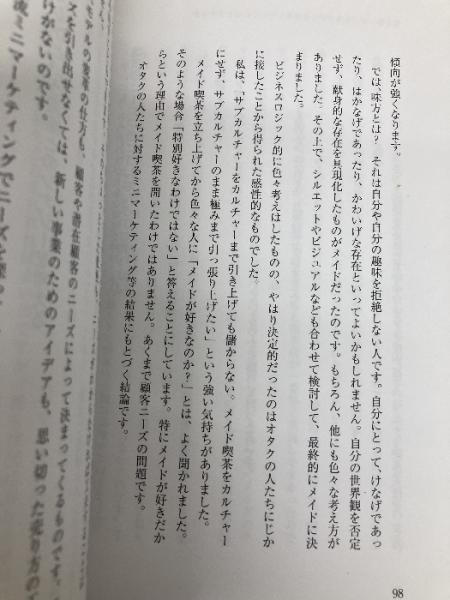 傾向が強くなります。
では、味方とは? それは自分や自分の趣味を拒絶しない人です。自分にとって、けなげであっ
たり、はかなげであったり、かわいげな存在といってよいかもしれません。自分の世界観を否定
せず、献身的な存在を具現化したものがメイドだったのです。もちろん、他にも色々な考え方が
ありました。その上で、シルエットやビジュアルなども合わせて検討して、最終的にメイドに決
まりました。
ビジネスロジック的に色々考えはしたものの、やはり決定的だったのはオタクの人たちにじか
に接したことから得られた感性的なものでした。
私は、「サブカルチャーをカルチャーまで引き上げても儲からない。メイド喫茶をカルチャー
にせず、サブカルチャーのまま極みまで引っ張り上げたい」という強い気持ちがありました。
メイド喫茶を立ち上げてから色々な人に「メイドが好きなのか?」とは、よく聞かれました。
そのような場合「特別好きなわけではない」と答えることにしています。特にメイドが好きだか
らという理由でメイド喫茶を開いたわけではありません。あくまで顧客ニーズの問題です。
オタクの人たちに対するミニマーケティング等の結果にもとづく結論です。
98
顧客や潜在顧客のニーズによって決まってくるものです。
ズを引き出せなくては、新しい事業のためのアイデアも、思い切った売り方の
けがないのです。
流ミニマーケティングでニーズを